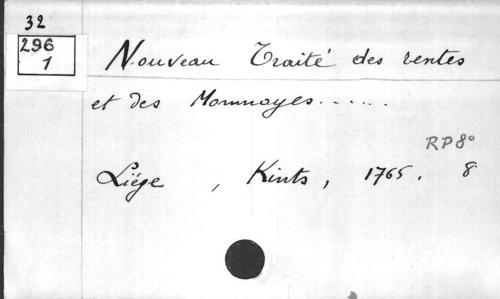 32
296
1
Nouveau Traité des rentes
et des Monnoyes......
RP8°
Liége, Kints, 1765. 8